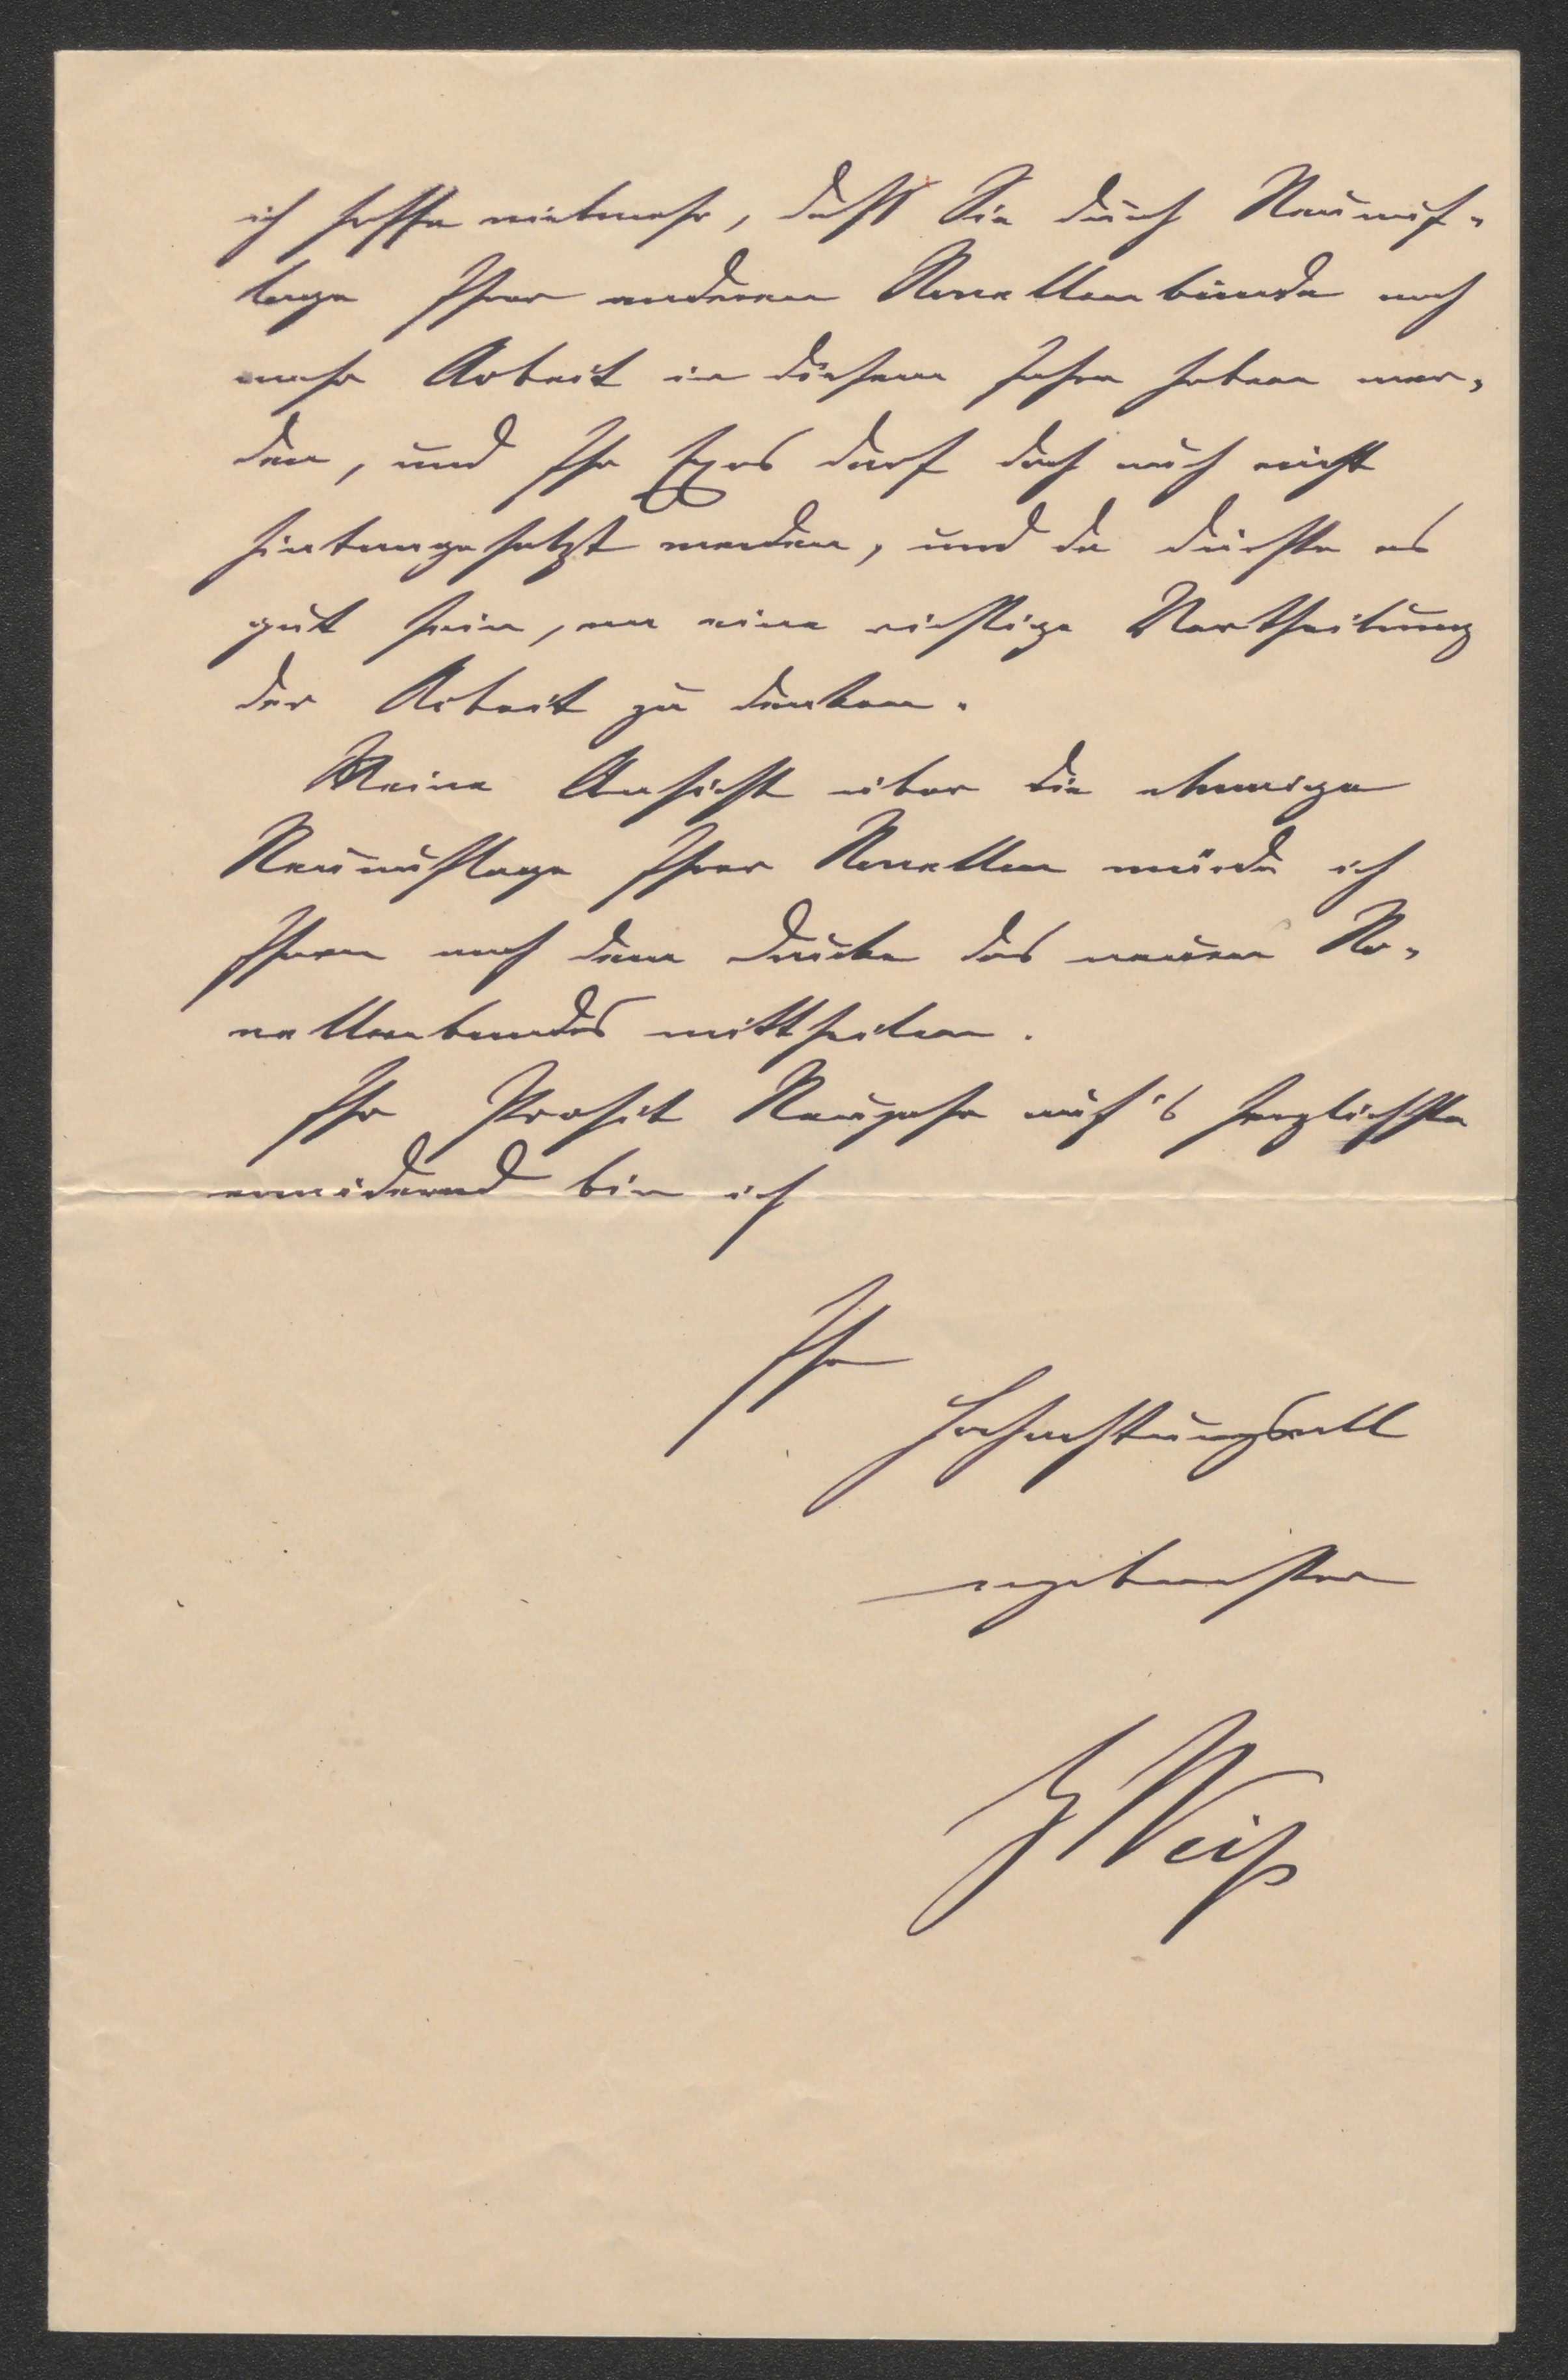 ich hoffe vielmehr, daß Sie durch Neuauf-
lage Ihrer anderen Novellenbände noch
mehr Arbeit in diesem Jahre haben wer-
den, und Ihr Epos darf doch auch nicht
hintangesetzt werden, und da dürfte es
gut sein, an eine richtige Vertheilung
der Arbeit zu denken.
Meine Ansicht über die etwaige
Neuauflage Ihrer Novellen würde ich
Ihnen nach dem Drucke des neuen No-
vellenbandes mittheilen.
Ihr Prosit Neujahr auf's herzlichste
erwidernd bin ich
Ihr
hochachtungsvoll
ergebenster
Weiß